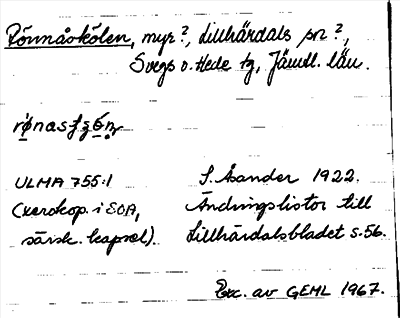 Rönnåskölen, myr?, Lillhärdals sn?,
Svegs o. Hede tg, Jämtl. län.
ULMA 755:1 S. Åsander 1922.
(xerokop. i SOA, Ändringslistor till
särsk. kapsel). Lillhärdalsbladet s. 56.
Exc. av GEHL 1967.